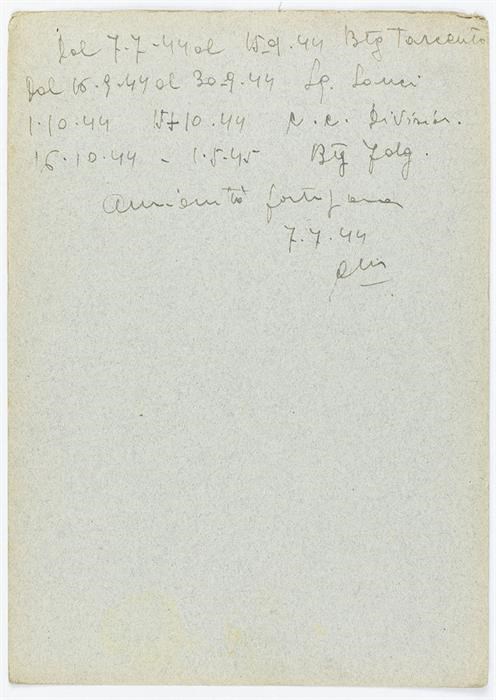 Dal 7-7-44 al 15-9-44 Btg Tarcento
Dal 16-9-44 al 30-9-44
1-10-44 15-10-44 Division.
16-10-44 - 1-5-45 Btg
Anzianità partigiana
7.7.44